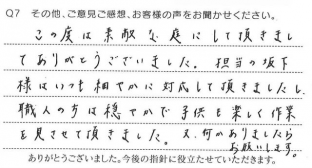 Q7 その他、ご意見ご感想、お客様の声をお聞かせください。
この度は素敵な庭にして頂きまし
てありがとうございました。担当の坂下
様はいつも細やかに対応して頂きましたし、
職人の方は穏やかで子供も楽しく作業
を見させて頂きました。又、何かありましたら
お願いします。
ありがとうございました。今後の指針に役立たせていただきます。